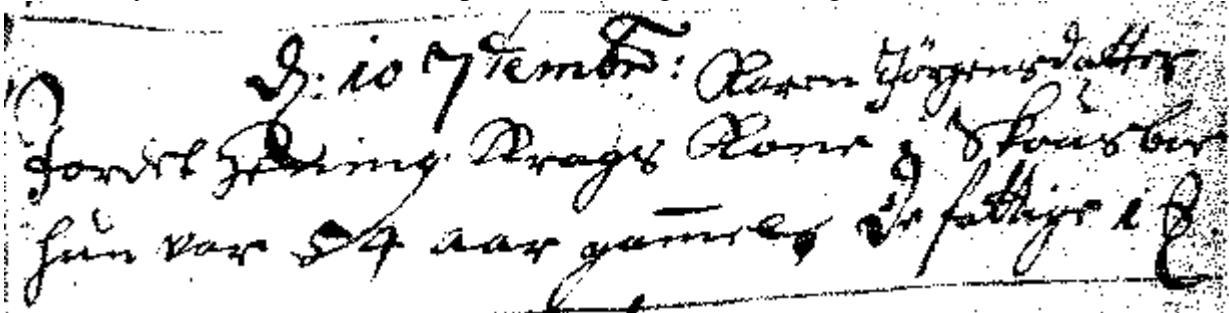 D: 10 7tembr: Karen Jörgensdatter
Jordet Henning Krags Kone, Skousboe
hun var 54 aar gam̄el, De fattige 1